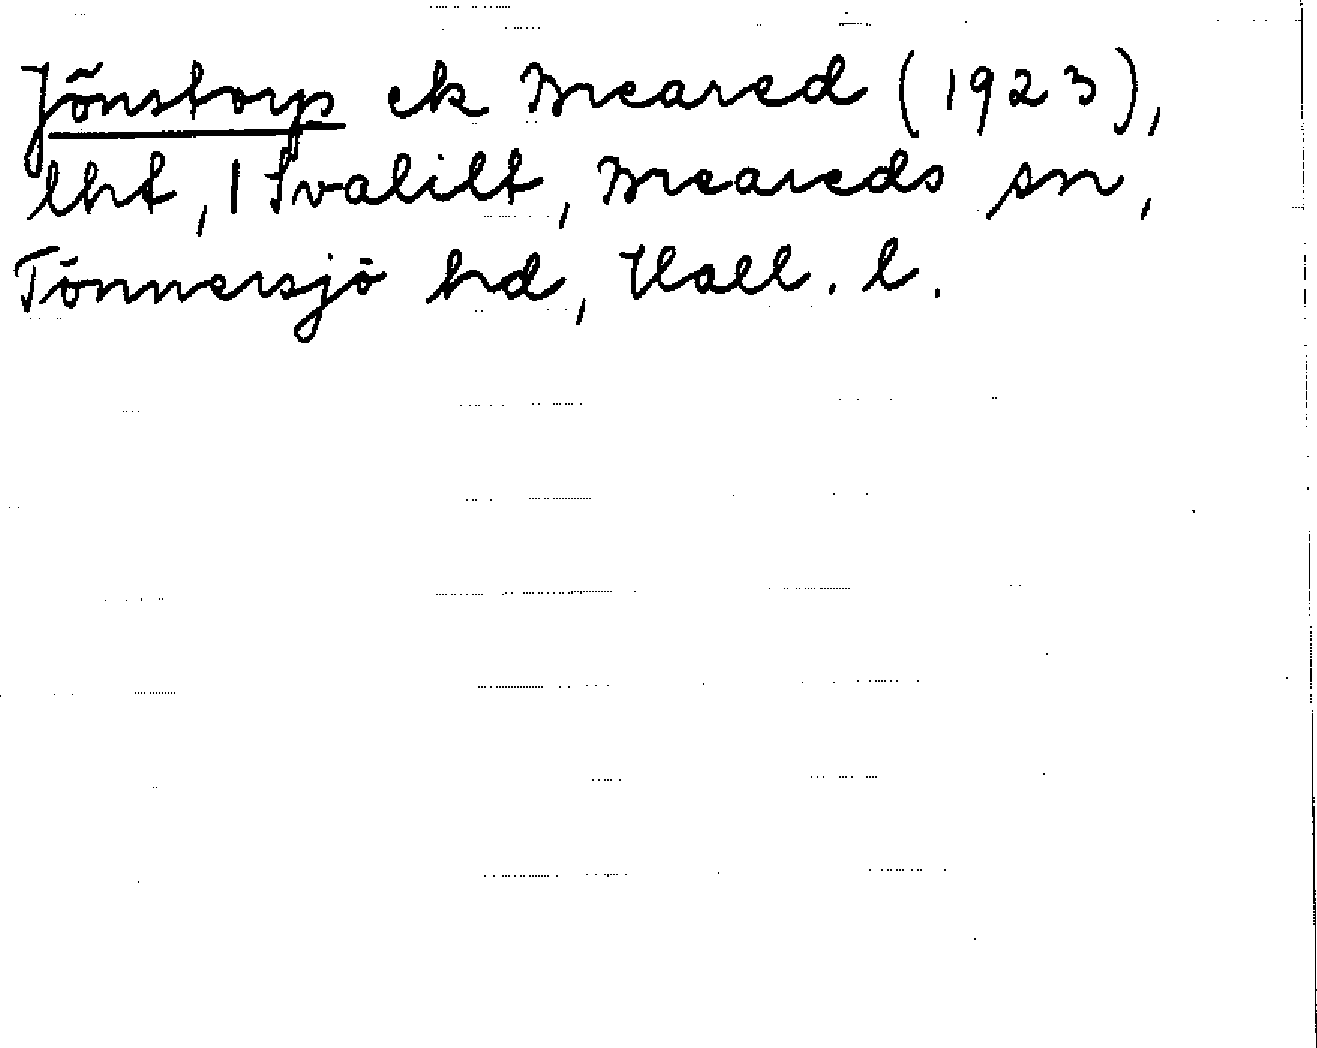 Jönstorp ek Breared (1923),
lht, 1 Svalilt, Breareds sn,
Tönnersjö hd, Hall. l.